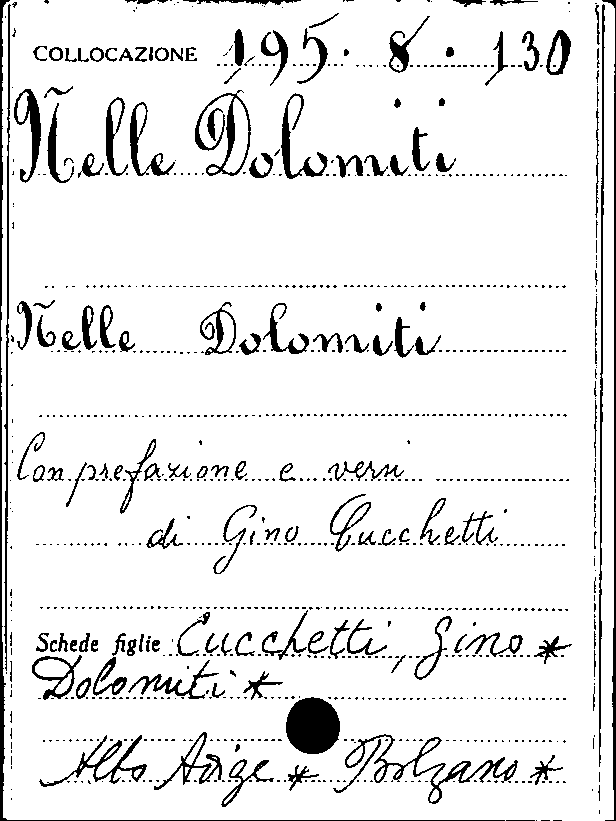 COLLOCAZIONE 195. 8. 130
Nelle Dolomiti
Nelle Dolomiti
Con prefazione e versi
di Gino Cucchetti
Schede figlie Cucchetti, Gino *
Dolomiti *
Alto Adige * Bolzano *